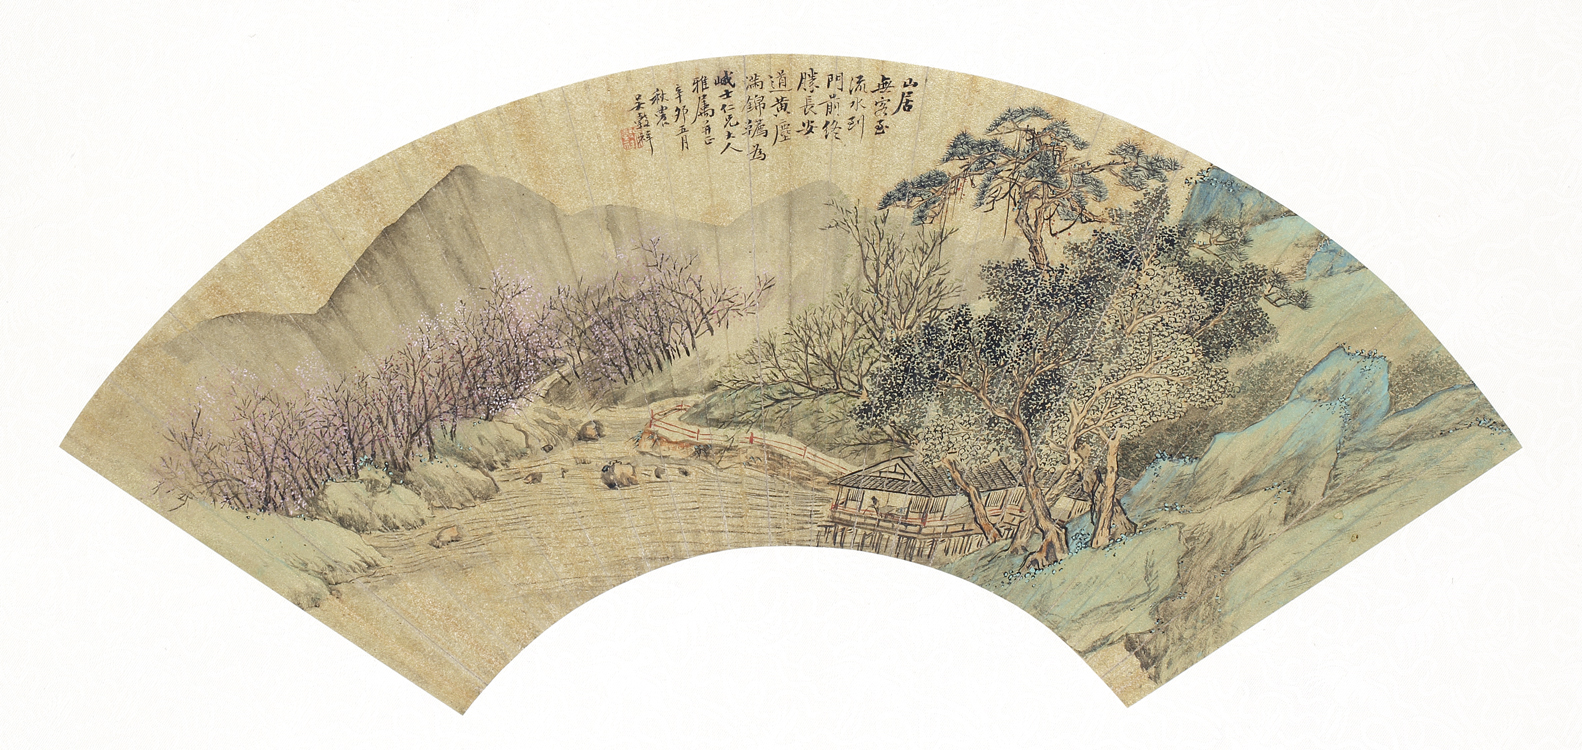 山居
無客至
流水到
門前終
勝長安
道黃塵
滿錦韉為
峨士仁兄大人
雅属即正
辛卯五月
秋農
吳穀祥